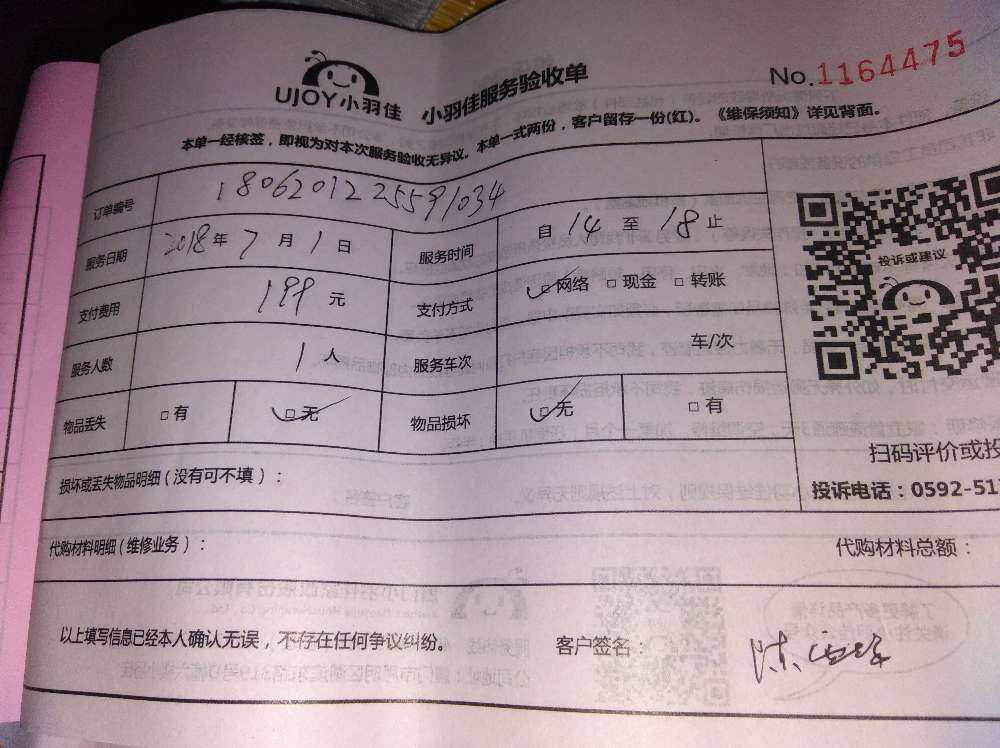 UJOY小羽佳 小羽佳服务验收单 No.1164475
本单一经核签，即视为对本次服务验收无异议。本单一式两份，客户留存一份(红)。《维保须知》详见背面。
订单编号 1806201225591034
服务日期 2018年7月1日 服务时间 自14至18止
支付费用 199元 支付方式 □网络 □现金 □转账
服务人数 1人 服务车次 车/次
物品丢失 □有 □无 物品损坏 □无 □有
投诉或建议
扫码评价或投
损坏或丢失物品明细(没有可不填)：
投诉电话：0592-51
代购材料明细(维修业务)： 代购材料总额：
以上填写信息已经本人确认无误，不存在任何争议纠纷。 客户签名： 陈